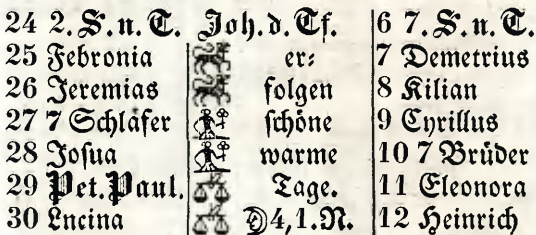 24 2. S. n. T. Joh. d. Tf. 6 7. S. n. T.
25 Febronia er⸗ 7 Demetrius
26 Jeremias folgen 8 Kilian
27 7 Schläfer schöne 9 Cyrillus
28 Josua warme 10 7 Brüder
29 Pet. Paul. Tage. 11 Eleonora
30 Lucina 4, 1. N. 12 Heinrich